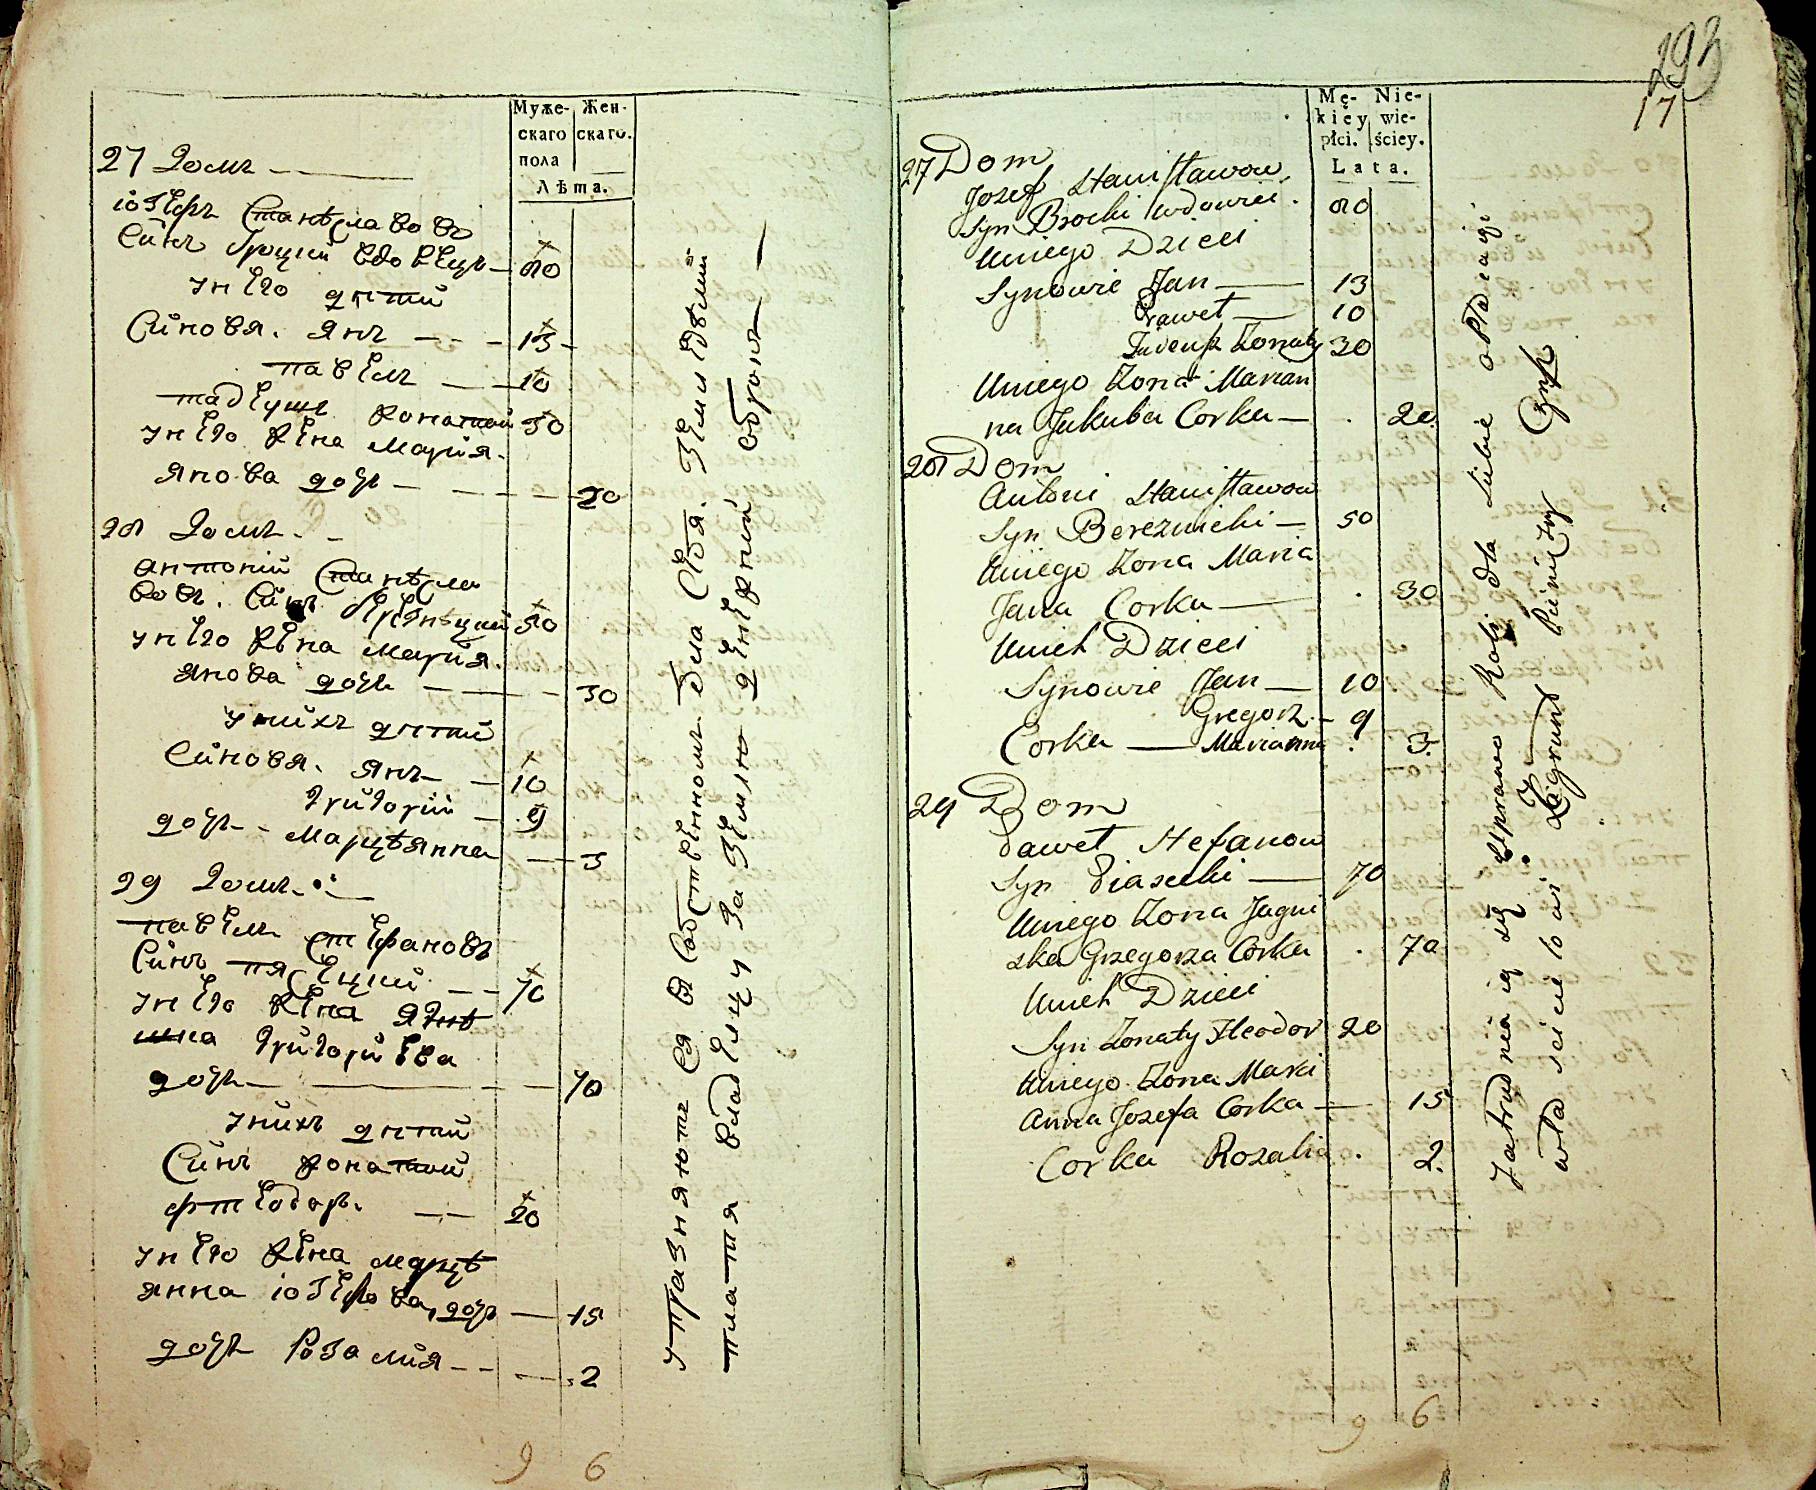 Муже-
скаго
пола
Жен-
скаго.
Лѣта.
27 Домъ
іозефъ Станѣславовъ
Синъ Броцкій вдовецъ — 80
у него дети
Синовя. Янъ — 13
павелъ — 10
тадеушъ жонатой 30
у него жена Мария.
Янова дочь — 20
28 Домъ
антоній Станѣсла
вовъ. Синъ Березнѣцкий 50
у него жена Мария.
Янова дочь — 30
у нихъ дети
Синовя. Янъ — 10
Григорій — 9
дочь - Марцѣянна — 3
29 Домъ
павелъ Стефановъ
Синъ пясецкий — 70
у него жена Ягнѣ
шка Григориева
дочь — 70
у нихъ дети
Синъ жонатой
фтеодоръ. — 20
у него жена Марцѣ
янна іозефова, дочь — 15
дочь Розалия — 2
9 6
упразняются въ Собственномъ для Себя. Землѣделии
платя владелцу за Землю денежний оброкъ —
193
17
Mę-
kiey
płci.
Nie-
wie-
ściey.
Lata.
27 Dom
Jozef Stanisławow
Syn Brocki wdowiec. 80
Uniego Dzieci
Synowie Jan — 13
Paweł — 10
Tadeusz Zonaty 30
Uniego Zona Marian
na Jakuba Corka — . 20.
28 Dom
Antoni Stanisławow
Syn Bereznicki — 50
Uniego Zona Maria
Jana Corka — . 30
Unich Dzieci
Synowie Jan — 10
Gregorz. — 9
Corka — Marianna . 3.
29 Dom
Paweł Stefanow
Syn Piasecki — 70
Uniego Zona Jagni
szka Grzegorza Corka . 70
Unich Dzieci
Syn Zonaty Fteodor 20
Uniego Zona Marci
Anna Jozefa Corka — 15
Corka Rozalia . 2.
9 6
Zatrudniaią się Uprawą Roli dla Siebie opłacaiąc
właścicielowi Zagrunt Pieniężny Czynsz